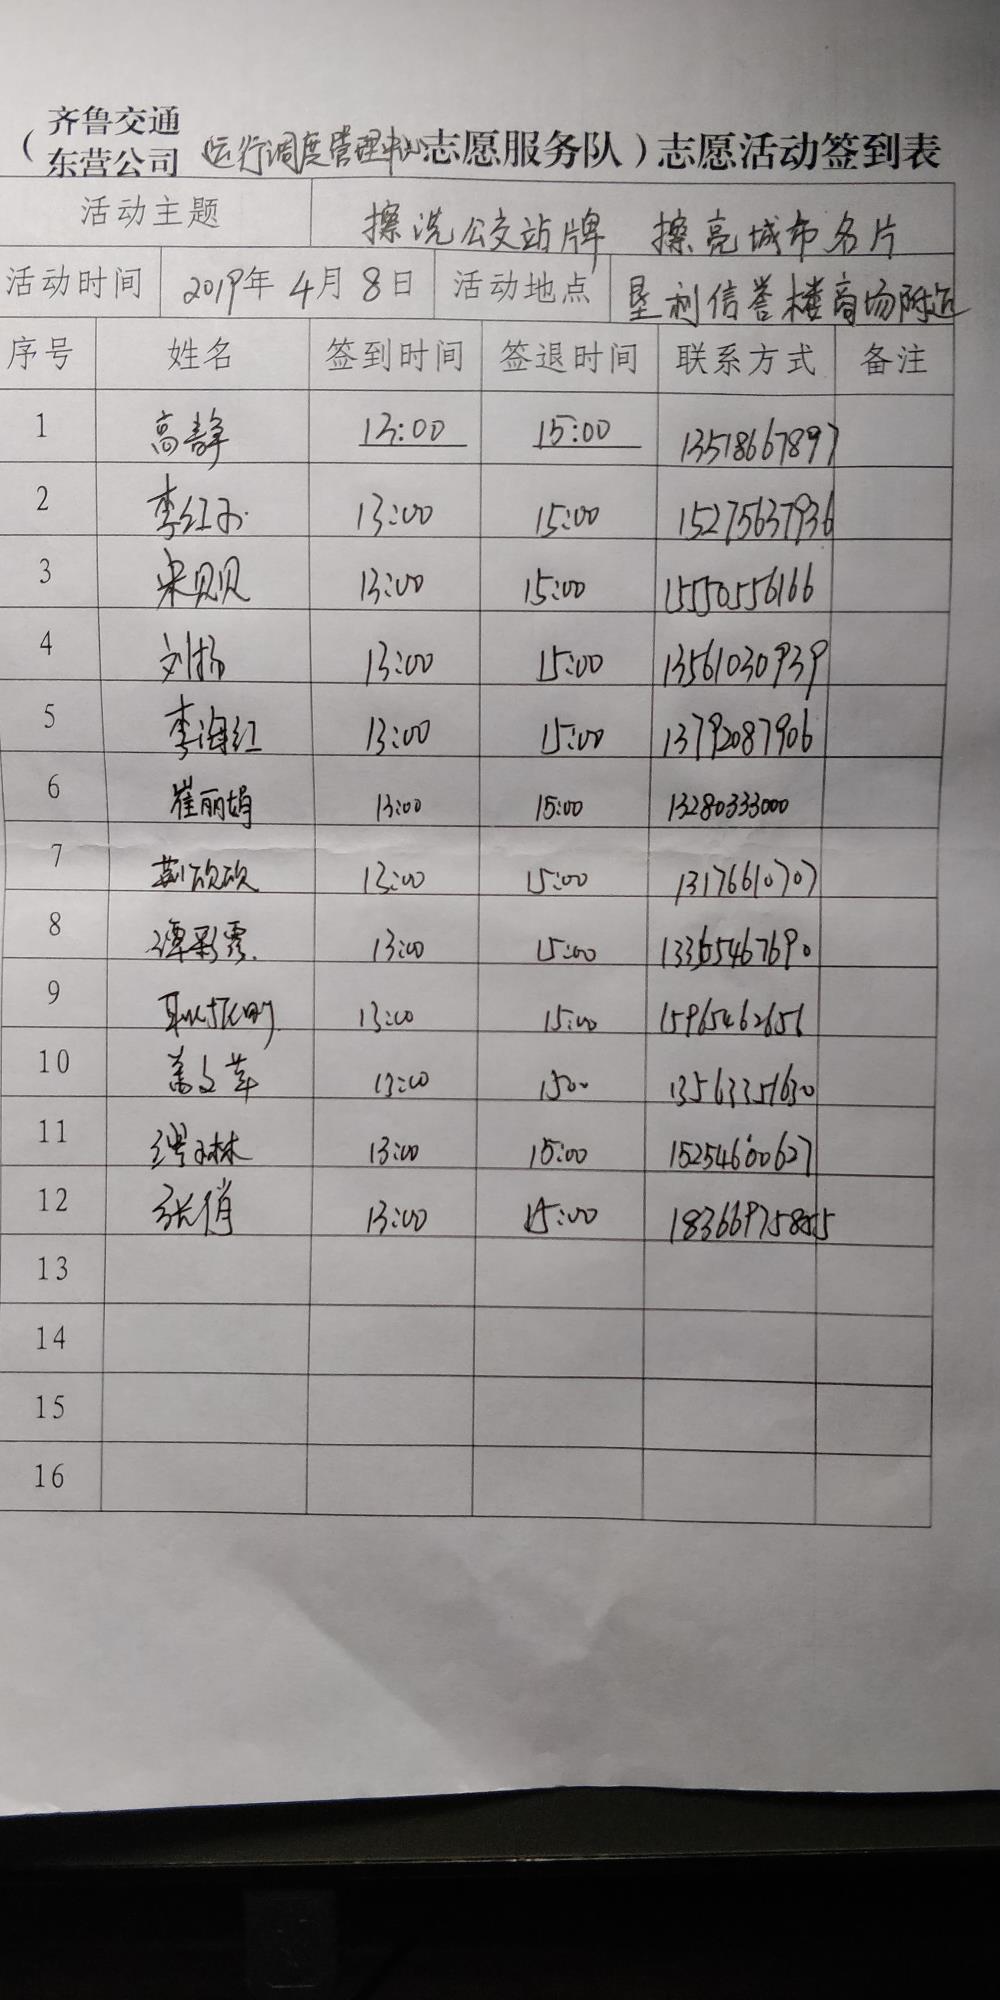 齐鲁交通
（东营公司 运行调度管理中心志愿服务队）志愿活动签到表
活动主题 擦洗公交站牌 擦亮城市名片
活动时间 2019年4月8日 活动地点 垦利信誉楼商场附近
序号 姓名 签到时间 签退时间 联系方式 备注
1 高静 13:00 15:00 13518667897
2 李红 13:00 15:00 15275637936
3 宋贝贝 13:00 15:00 15550556166
4 刘扬 13:00 15:00 13561030939
5 李海红 13:00 15:00 13792087906
6 崔丽娟 13:00 15:00 13280333000
7 13:00 15:00 13176610707
8 谭彩霞 13:00 15:00 13365467690
9 13:00 15:00 15965462656
10 13:00 1500 13563351630
11 13:00 15:00 15254600627
12 张俏 13:00 15:00 18366975855
13
14
15
16